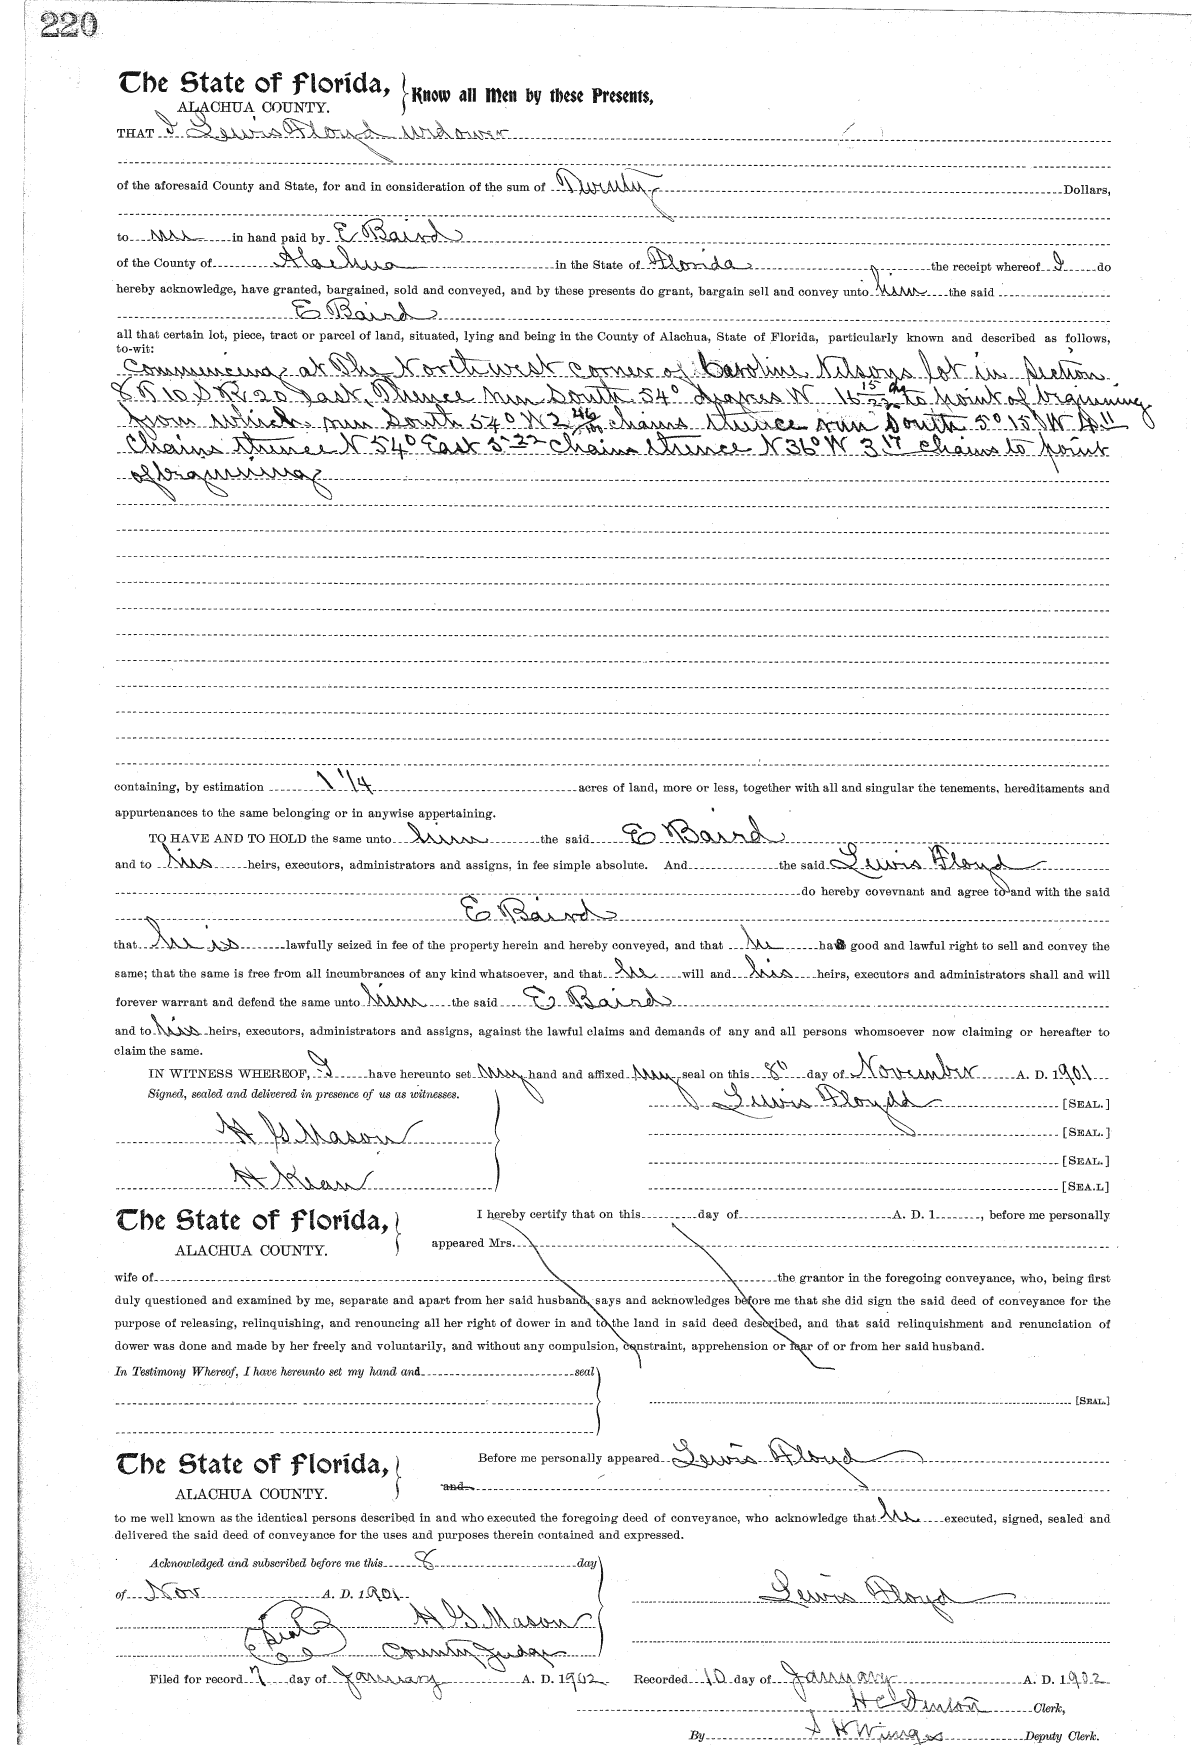 220
The State of Florida,
ALACHUA COUNTY.
Know all Men by these Presents,
THAT I Lewis Floyd widower
of the aforesaid County and State, for and in consideration of the sum of Twenty Dollars,
to me in hand paid by E Baird
of the County of Alachua in the State of Florida the receipt whereof I do
hereby acknowledge, have granted, bargained, sold and conveyed, and by these presents do grant, bargain sell and convey unto him the said
E Baird
all that certain lot, piece, tract or parcel of land, situated, lying and being in the County of Alachua, State of Florida, particularly known and described as follows,
to-wit:
Commencing at the North west corner of Caroline Nelsons lot in Section
10 S R 20 East, Thence run South 54° degrees W 16 to point of beginning
from which run South 54° W 2 46/100 chains thence run South 5° 15' W
Chains thence N 54° East 5 22 Chains thence N 36° W 3 17 chains to point
of beginning
containing, by estimation 1 1/4 acres of land, more or less, together with all and singular the tenements, hereditaments and
appurtenances to the same belonging or in anywise appertaining.
TO HAVE AND TO HOLD the same unto him the said E Baird
and to his heirs, executors, administrators and assigns, in fee simple absolute. And the said Lewis Floyd
do hereby covevnant and agree to and with the said
E Baird
that he is lawfully seized in fee of the property herein and hereby conveyed, and that he has good and lawful right to sell and convey the
same; that the same is free from all incumbrances of any kind whatsoever, and that he will and his heirs, executors and administrators shall and will
forever warrant and defend the same unto him the said E Baird
and to his heirs, executors, administrators and assigns, against the lawful claims and demands of any and all persons whomsoever now claiming or hereafter to
claim the same.
IN WITNESS WHEREOF, I have hereunto set my hand and affixed my seal on this 8" day of November A. D. 1901
Signed, sealed and delivered in presence of us as witnesses.
Lewis Floydd [SEAL.]
H G Mason [SEAL.]
[SEAL.]
H Kean [SEA.L]
The State of Florida,
ALACHUA COUNTY.
I hereby certify that on this day of A. D. 1 , before me personally
appeared Mrs.
wife of the grantor in the foregoing conveyance, who, being first
duly questioned and examined by me, separate and apart from her said husband, says and acknowledges before me that she did sign the said deed of conveyance for the
purpose of releasing, relinquishing, and renouncing all her right of dower in and to the land in said deed described, and that said relinquishment and renunciation of
dower was done and made by her freely and voluntarily, and without any compulsion, constraint, apprehension or fear of or from her said husband.
In Testimony Whereof, I have hereunto set my hand and seal
[SEAL.]
The State of Florida,
ALACHUA COUNTY.
Before me personally appeared Lewis Floyd
and
to me well known as the identical persons described in and who executed the foregoing deed of conveyance, who acknowledge that he executed, signed, sealed and
delivered the said deed of conveyance for the uses and purposes therein contained and expressed.
Acknowledged and subscribed before me this 8 day
of Nov A. D. 1901
Lewis Floyd
H G Mason
Seal
County Judge
Filed for record 7 day of January A. D. 1902 Recorded 10 day of January A. D. 1902
H C Denton Clerk,
By S H Wienges Deputy Clerk.